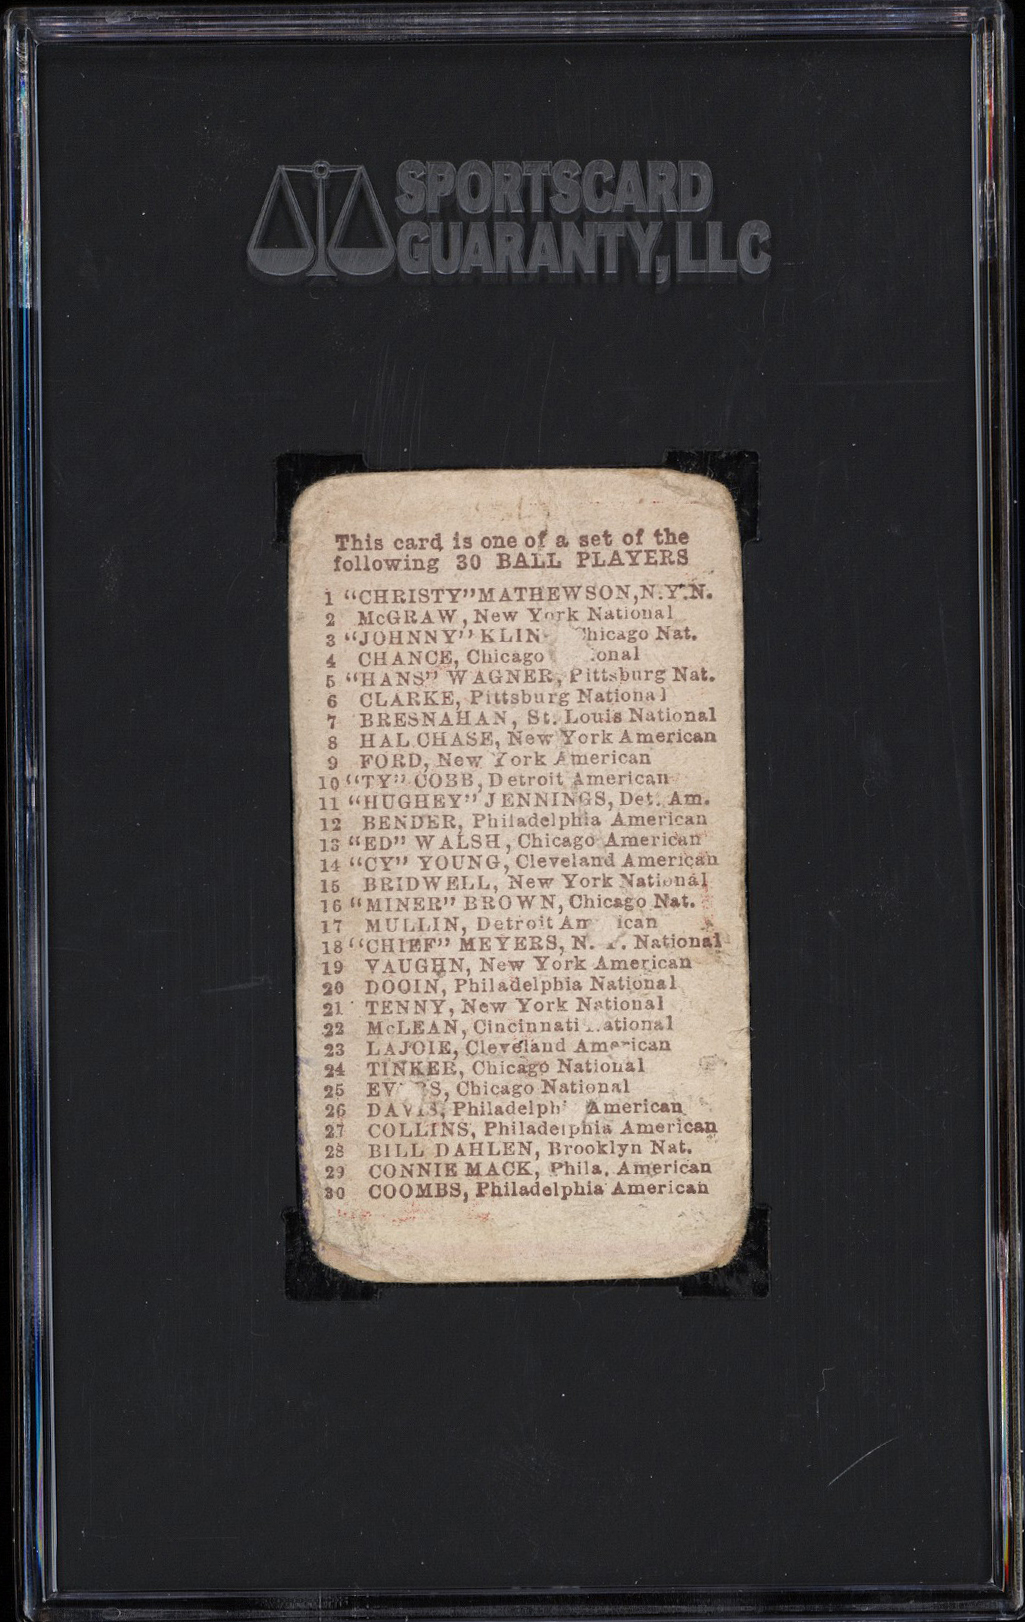 SPORTSCARD
GUARANTY, LLC
This card is one of a set of the
following 30 BALL PLAYERS
1 "CHRISTY" MATHEWSON, N.Y.N.
2 McGRAW, New York National
3 "JOHNNY" KLIN Chicago Nat.
4 CHANCE, Chicago onal
5 "HANS" WAGNER, Pittsburg Nat.
6 CLARKE, Pittsburg National
7 BRESNAHAN, St. Louis National
8 HAL CHASE, New York American
9 FORD, New York American
10 "TY" COBB, Detroit American
11 "HUGHEY" JENNINGS, Det. Am.
12 BENDER, Philadelphia American
13 "ED" WALSH, Chicago American
14 "CY" YOUNG, Cleveland American
15 BRIDWELL, New York National
16 "MINER" BROWN, Chicago Nat.
17 MULLIN, Detroit Am ican
18 "CHIEF" MEYERS, N. Y. National
19 VAUGHN, New York American
20 DOOIN, Philadelphia National
21 TENNY, New York National
22 McLEAN, Cincinnati National
23 LAJOIE, Cleveland American
24 TINKER, Chicago National
25 EV RS, Chicago National
26 DAVIS, Philadelph American
27 COLLINS, Philadelphia American
28 BILL DAHLEN, Brooklyn Nat.
29 CONNIE MACK, Phila. American
30 COOMBS, Philadelphia American